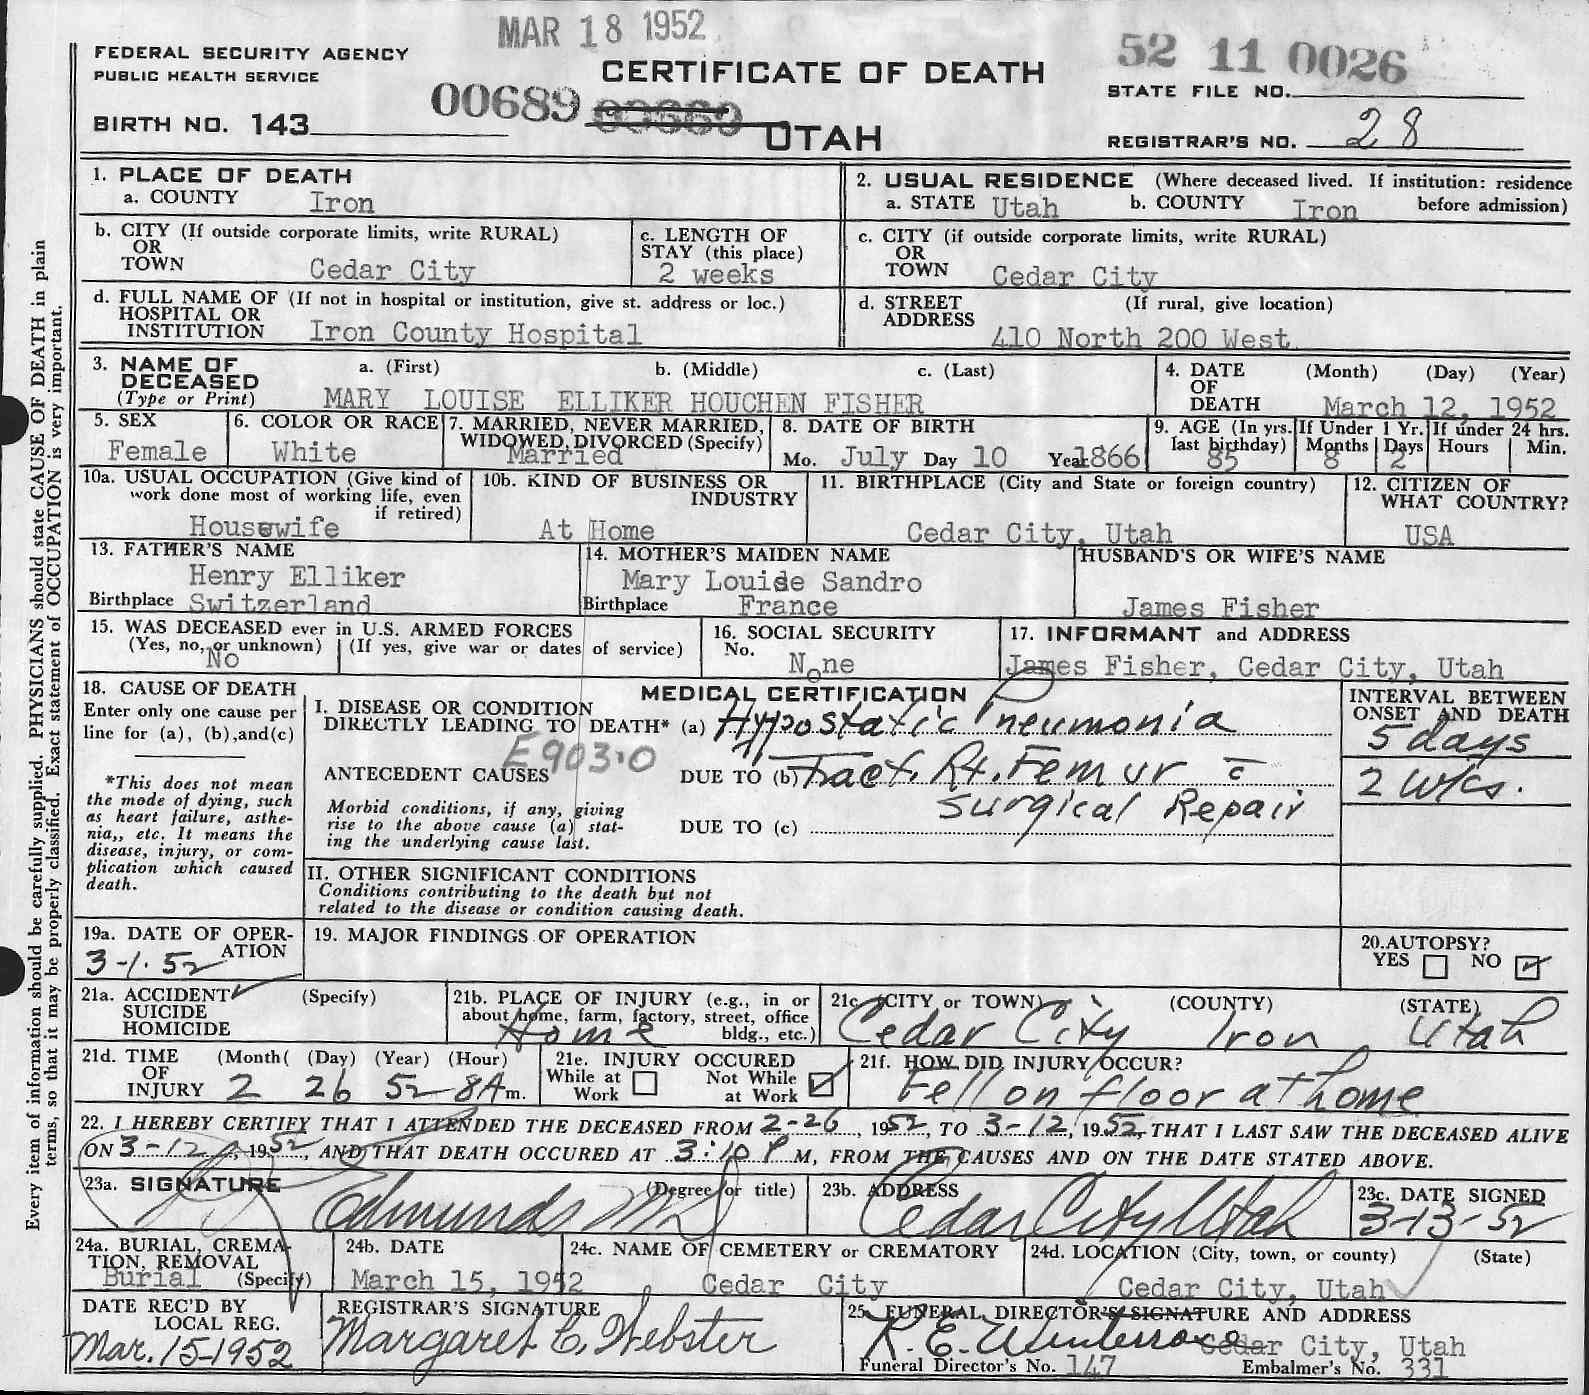 MAR 18 1952
FEDERAL SECURITY AGENCY
PUBLIC HEALTH SERVICE
CERTIFICATE OF DEATH
52 11 0026
STATE FILE NO.
00689
BIRTH NO. 143
UTAH
REGISTRAR'S NO. 28
Every item of information should be carefully supplied. PHYSICIANS should state CAUSE OF DEATH in plain
terms, so that it may be properly classified. Exact statement of OCCUPATION is very important.
1. PLACE OF DEATH
a. COUNTY Iron
2. USUAL RESIDENCE (Where deceased lived. If institution: residence before admission)
a. STATE Utah b. COUNTY Iron
b. CITY (If outside corporate limits, write RURAL)
OR
TOWN Cedar City
c. LENGTH OF
STAY (this place)
2 weeks
c. CITY (if outside corporate limits, write RURAL)
OR
TOWN Cedar City
d. FULL NAME OF (If not in hospital or institution, give st. address or loc.)
HOSPITAL OR
INSTITUTION Iron County Hospital
d. STREET (If rural, give location)
ADDRESS
410 North 200 West
3. NAME OF
DECEASED
(Type or Print)
a. (First) b. (Middle) c. (Last)
MARY LOUISE ELLIKER HOUCHEN FISHER
4. DATE (Month) (Day) (Year)
OF
DEATH March 12, 1952
5. SEX
Female
6. COLOR OR RACE
White
7. MARRIED, NEVER MARRIED,
WIDOWED, DIVORCED (Specify)
Married
8. DATE OF BIRTH
Mo. July Day 10 Year 1866
9. AGE (In yrs. last birthday) 85
If Under 1 Yr. Months 8 Days 2
If under 24 hrs. Hours Min.
10a. USUAL OCCUPATION (Give kind of
work done most of working life, even
if retired)
Housewife
10b. KIND OF BUSINESS OR
INDUSTRY
At Home
11. BIRTHPLACE (City and State or foreign country)
Cedar City, Utah
12. CITIZEN OF
WHAT COUNTRY?
USA
13. FATHER'S NAME
Henry Elliker
Birthplace Switzerland
14. MOTHER'S MAIDEN NAME
Mary Louise Sandro
Birthplace France
HUSBAND'S OR WIFE'S NAME
James Fisher
15. WAS DECEASED ever in U.S. ARMED FORCES
(Yes, no, or unknown) (If yes, give war or dates of service)
No
16. SOCIAL SECURITY
No. None
17. INFORMANT and ADDRESS
James Fisher, Cedar City, Utah
18. CAUSE OF DEATH
Enter only one cause per
line for (a), (b), and (c)
*This does not mean
the mode of dying, such
as heart failure, asthe-
nia,, etc. It means the
disease, injury, or com-
plication which caused
death.
MEDICAL CERTIFICATION
I. DISEASE OR CONDITION
DIRECTLY LEADING TO DEATH* (a) Hypostatic Pneumonia
E903.0
ANTECEDENT CAUSES DUE TO (b) Fract. Rt. Femur c̄
Surgical Repair
Morbid conditions, if any, giving
rise to the above cause (a) stat-
ing the underlying cause last.
DUE TO (c)
INTERVAL BETWEEN
ONSET AND DEATH
5 days
2 wks.
II. OTHER SIGNIFICANT CONDITIONS
Conditions contributing to the death but not
related to the disease or condition causing death.
19a. DATE OF OPER-
ATION
3-1-52
19. MAJOR FINDINGS OF OPERATION
20. AUTOPSY?
YES NO ✓
21a. ACCIDENT ✓ (Specify)
SUICIDE
HOMICIDE
21b. PLACE OF INJURY (e.g., in or
about home, farm, factory, street, office
bldg., etc.)
Home
21c. (CITY or TOWN) (COUNTY) (STATE)
Cedar City Iron Utah
21d. TIME (Month( (Day) (Year) (Hour)
OF
INJURY 2 26 52 8A m.
21e. INJURY OCCURED
While at Work Not While at Work ✓
21f. HOW DID INJURY OCCUR?
Fell on floor at home
22. I HEREBY CERTIFY THAT I ATTENDED THE DECEASED FROM 2-26, 1952, TO 3-12, 1952, THAT I LAST SAW THE DECEASED ALIVE
ON 3-12, 1952, AND THAT DEATH OCCURED AT 3:10 P M, FROM THE CAUSES AND ON THE DATE STATED ABOVE.
23a. SIGNATURE (Degree or title)
Edmunds MD
23b. ADDRESS
Cedar City Utah
23c. DATE SIGNED
3-13-52
24a. BURIAL, CREMA-
TION, REMOVAL
Burial (Specify)
24b. DATE
March 15, 1952
24c. NAME OF CEMETERY or CREMATORY
Cedar City
24d. LOCATION (City, town, or county) (State)
Cedar City, Utah
DATE REC'D BY
LOCAL REG.
Mar. 15-1952
REGISTRAR'S SIGNATURE
Margaret C. Webster
25. FUNERAL DIRECTOR'S SIGNATURE AND ADDRESS
Cedar City, Utah
Funeral Director's No. 147 Embalmer's No. 331